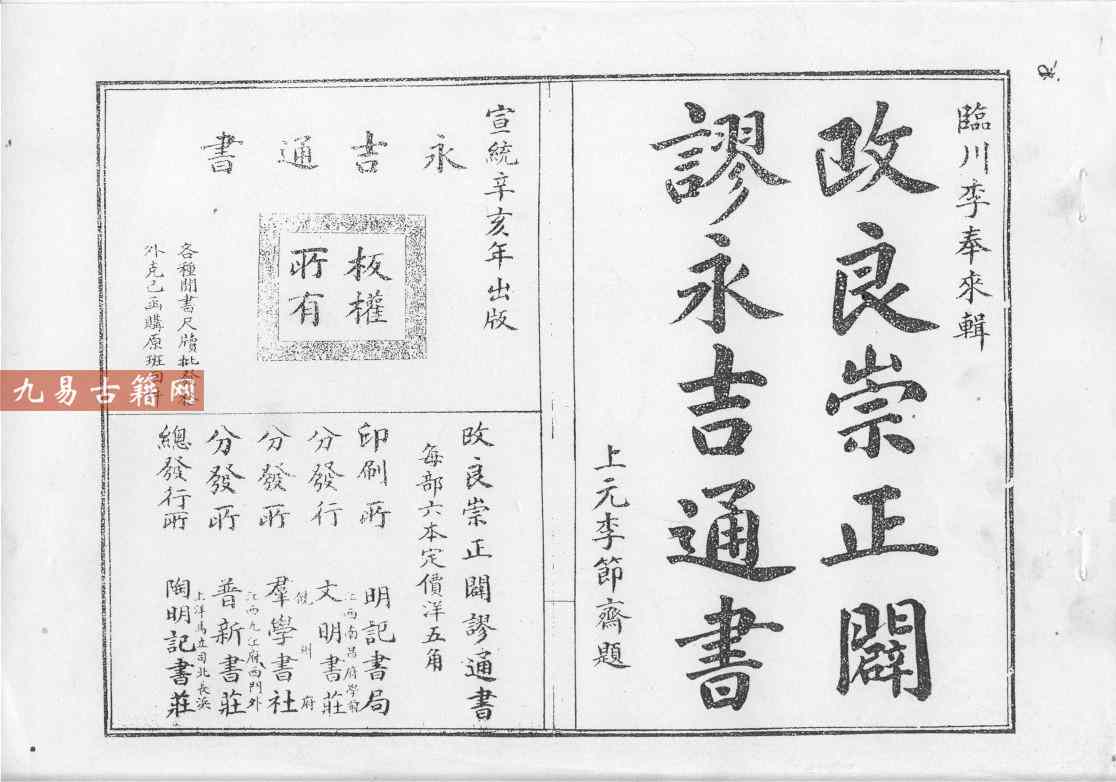 臨川李奉來輯
改良崇正闢
謬永吉通書
上元李節齋題
宣統辛亥年出版
永吉通書
板權
所有
各種閒書尺牘批發
外克己函購原班
改良崇正闢謬通書
每部六本定價洋五角
印刷所 明記書局
江西南昌府學前
分發行 文明書莊
饒州府
分發所 羣學書社
江西九江府西門外
分發所 普新書莊
上洋馬立司北長浜
總發行所 陶明記書莊
九易古籍网